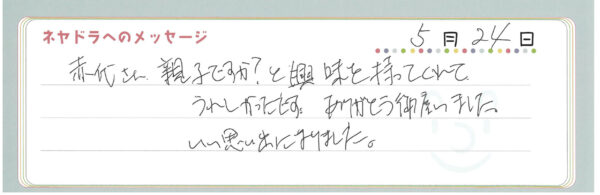 ネヤドラへのメッセージ 5月24日
赤代さん、親子ですか?と興味を持ってくれて
うれしかったです。ありがとう御座いました。
いい思い出になりました。